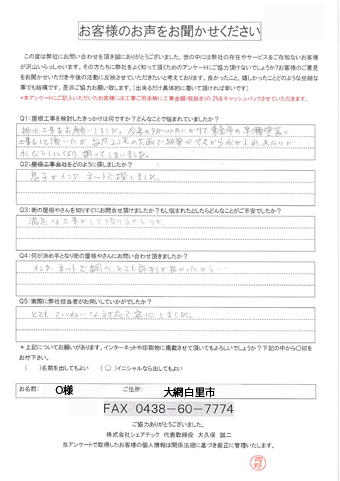 お客様のお声をお聞かせください
この度は弊社にお問い合わせを頂き誠にありがとうございました。世の中には弊社の存在やサービスをご存知ないお客様
が沢山いらっしゃいます。その方たちに弊社をよく知って頂くためのアンケートにご協力頂けないでしょうか？お客様のご意見
をお聞かせいただき今後の活動に反映させていただきたいと考えております。良かったこと、嬉しかったことどのような些細な
事でも結構です。是非ご協力お願い致します。（出来るだけ具体的に書いて頂ければ幸いです）
*本アンケートにご記入いただいたお客様には工事ご用命時に工事金額(税抜き)の2%をキャッシュバックさせていただきます。
Q1：屋根工事を検討したきっかけは何ですか？どんなことで悩まれていましたか？
Q2：屋根工事会社をどのように探しましたか？
息子がインターネットで探しました。
Q3：街の屋根やさんを知りすぐにお問合せ頂けましたか？もし悩まれたとしたらどんなことがご不安でしたか？
満足な工事がして頂けるかどうか。
Q4：何が決め手となり街の屋根やさんにお問い合わせ頂きましたか？
インターネットで調べ、とても評判が良かったから…
Q5：実際に弊社担当者がお伺いしていかがでしたか？
とてもていねいな対応で安心しました。
＊上記についてお願いがあります。インターネットや印刷物に掲載させて頂いてもよろしいでしょうか？下記の中から〇印を
お付下さい。
（　　）名前を出してもよい　（ 〇 ）イニシャルなら出してもよい
お名前： O様 ご住所： 大網白里市
FAX 0438-60-7774
ご協力ありがとうございました。
株式会社シェアテック 代表取締役 大久保 誠二
当アンケートで取得したお客様の個人情報は関係法規に基づき厳正に管理いたします。